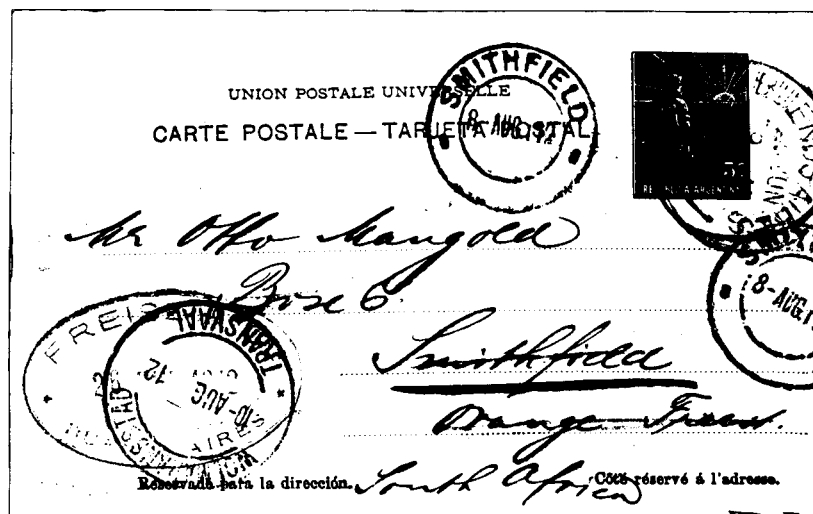 UNION POSTALE UNIVERSELLE
CARTE POSTALE — TARJETA POSTAL
SMITHFIELD
8 AUG 12
REPUBLICA ARGENTINA
BUENOS AIRES
JUN
8-AUG 1
Mr Otto Mangold
Box 6
Smithfield
Orange
South Africa
TRANSVAAL
10-AUG 12
AIRES
Reservada para la dirección.
Côté réservé á l'adresse.